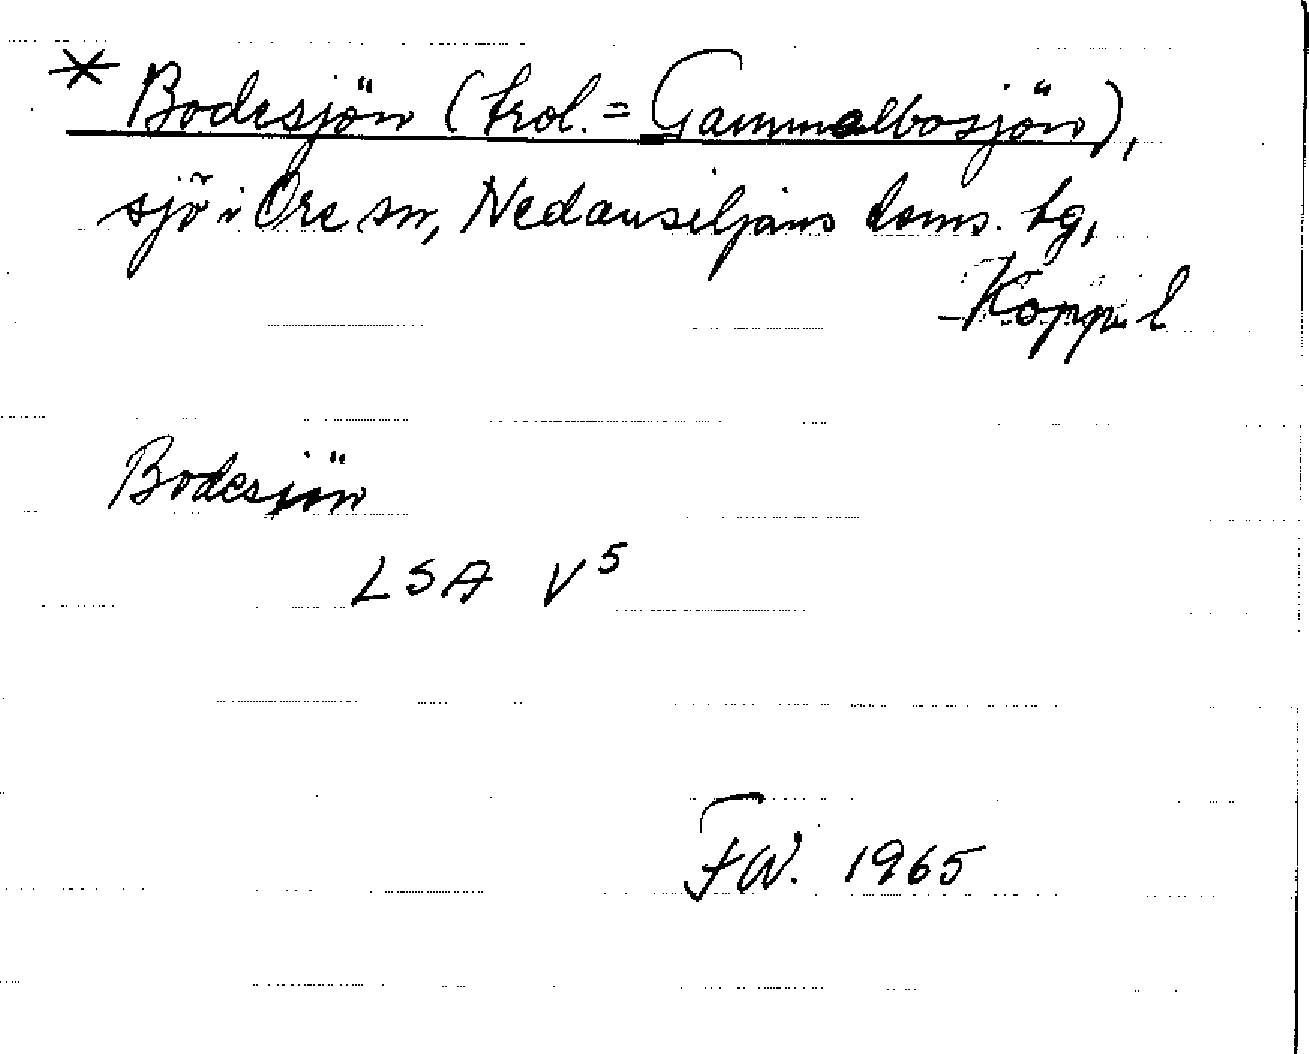 * Bodesjön (trol. = Gammalbosjön),
sjö i Ore sn, Nedansiljans doms. tg,
Kopp. l
Bodesjön
LSA V⁵
F.W. 1965